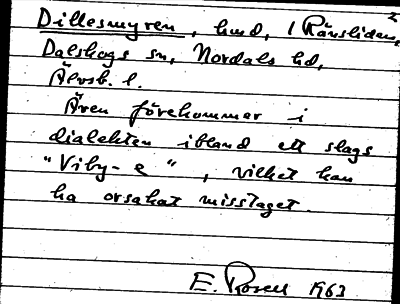 Dillesmyren, hmd, 1 Rävsliden,
Dalskogs sn, Nordals hd,
Älvsb. l.
Även förekommer i
dialekten ibland ett slags
"Viby-e", vilket kan
ha orsakat misstaget.
E. Rosell 1963